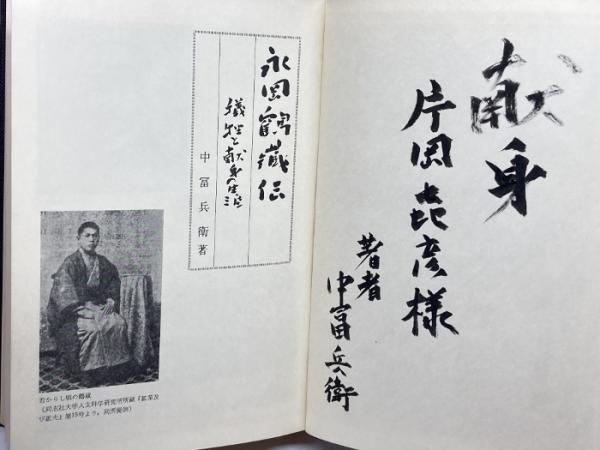 献身
片岡㐂彦様
著者
中冨兵衛
永岡鶴蔵伝
犠牲と献身の生涯
中冨兵衛著
若かりし頃の鶴蔵
(同志社大学人文科学研究所所蔵『鉱業及
び鉱夫』第15号より。同所提供)